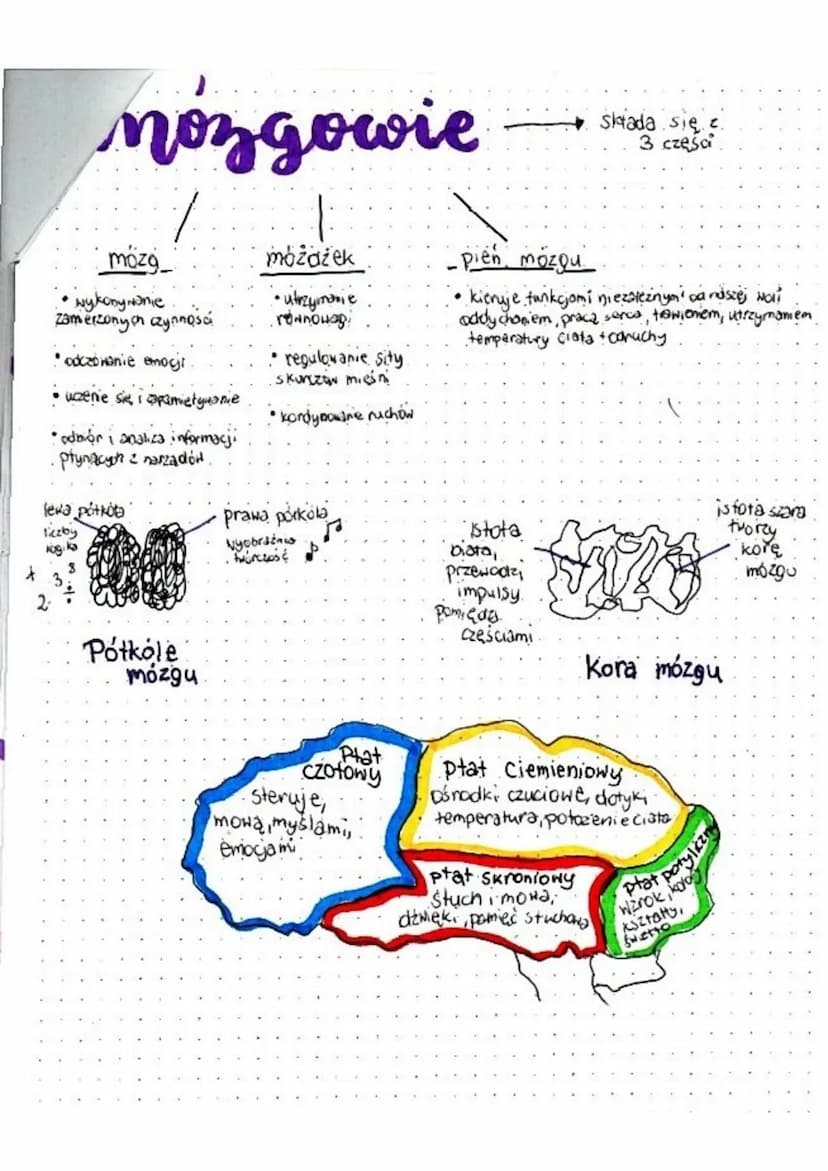 mózgowie
składa się z
3 części
mózg
• wykonywanie
zamierzonych czynności
• odczuwanie emocji
• uczenie się i zapamiętywanie
• odbiór i analiza informacji
płynących z narządów
móżdżek
• utrzymanie
równowagi
• regulowanie siły
skurczów mięśni
• kordynowanie ruchów
pień mózgu
• kieruje funkcjami niezależnymi od naszej woli
oddychaniem, pracą serca, trawieniem, utrzymaniem
temperatury ciała + odruchy
lewa półkula
liczby
logika
+ 3 8 ÷
2.
prawa półkula
wyobraźnia
twórczość
Półkóle
mózgu
istota
biała,
przewodzi
impulsy
pomiędzy
częściami
istota szara
tworzy
korę
mózgu
kora mózgu
płat
czołowy
steruje,
mową, myślami,
emocjami
płat ciemieniowy
ośrodki czuciowe, dotyk,
temperatura, położenie ciała
płat skroniowy
słuch i mowa,
dźwięki, pamięć słuchowa
płat potyliczny
wzrok, kolory
kształty,
światło